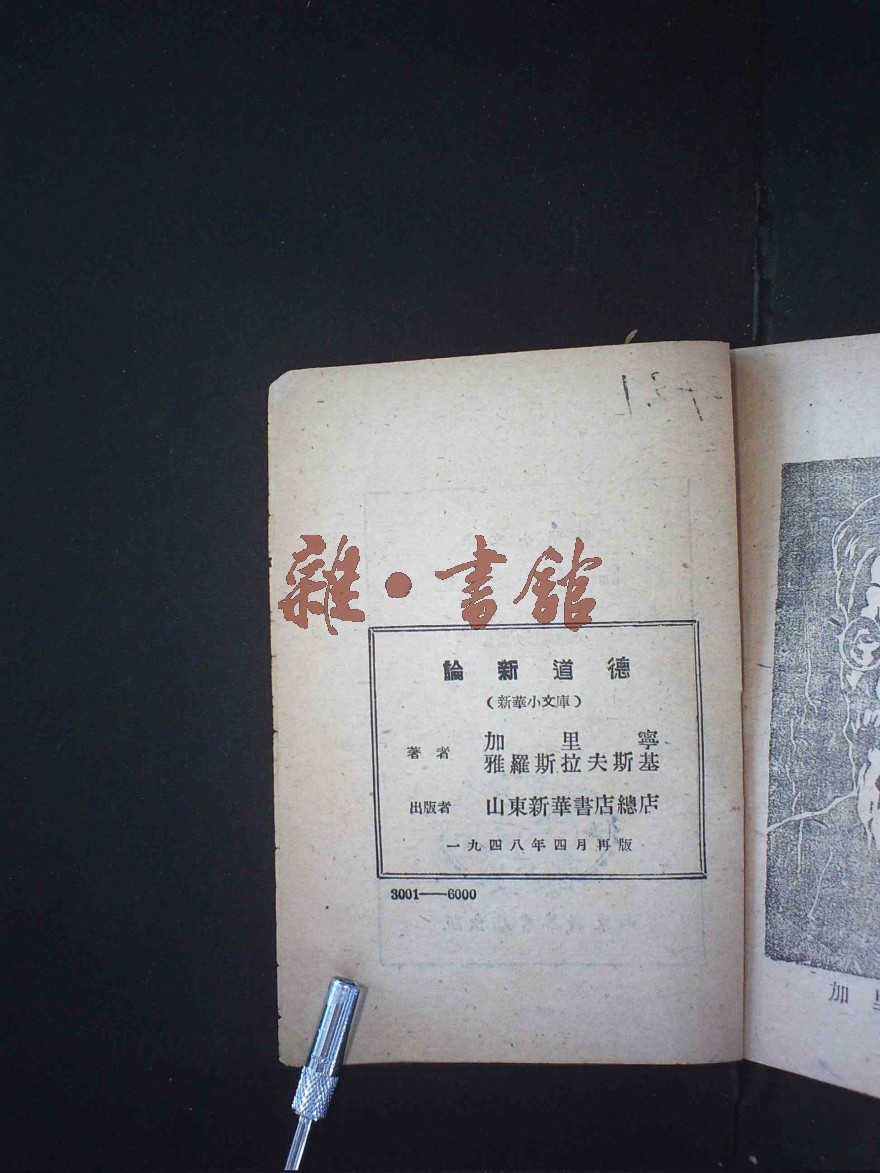 雜·書館
論新道德
（新華小文庫）
著者 加里寧
雅羅斯拉夫斯基
出版者 山東新華書店總店
一九四八年四月再版
3001——6000
加